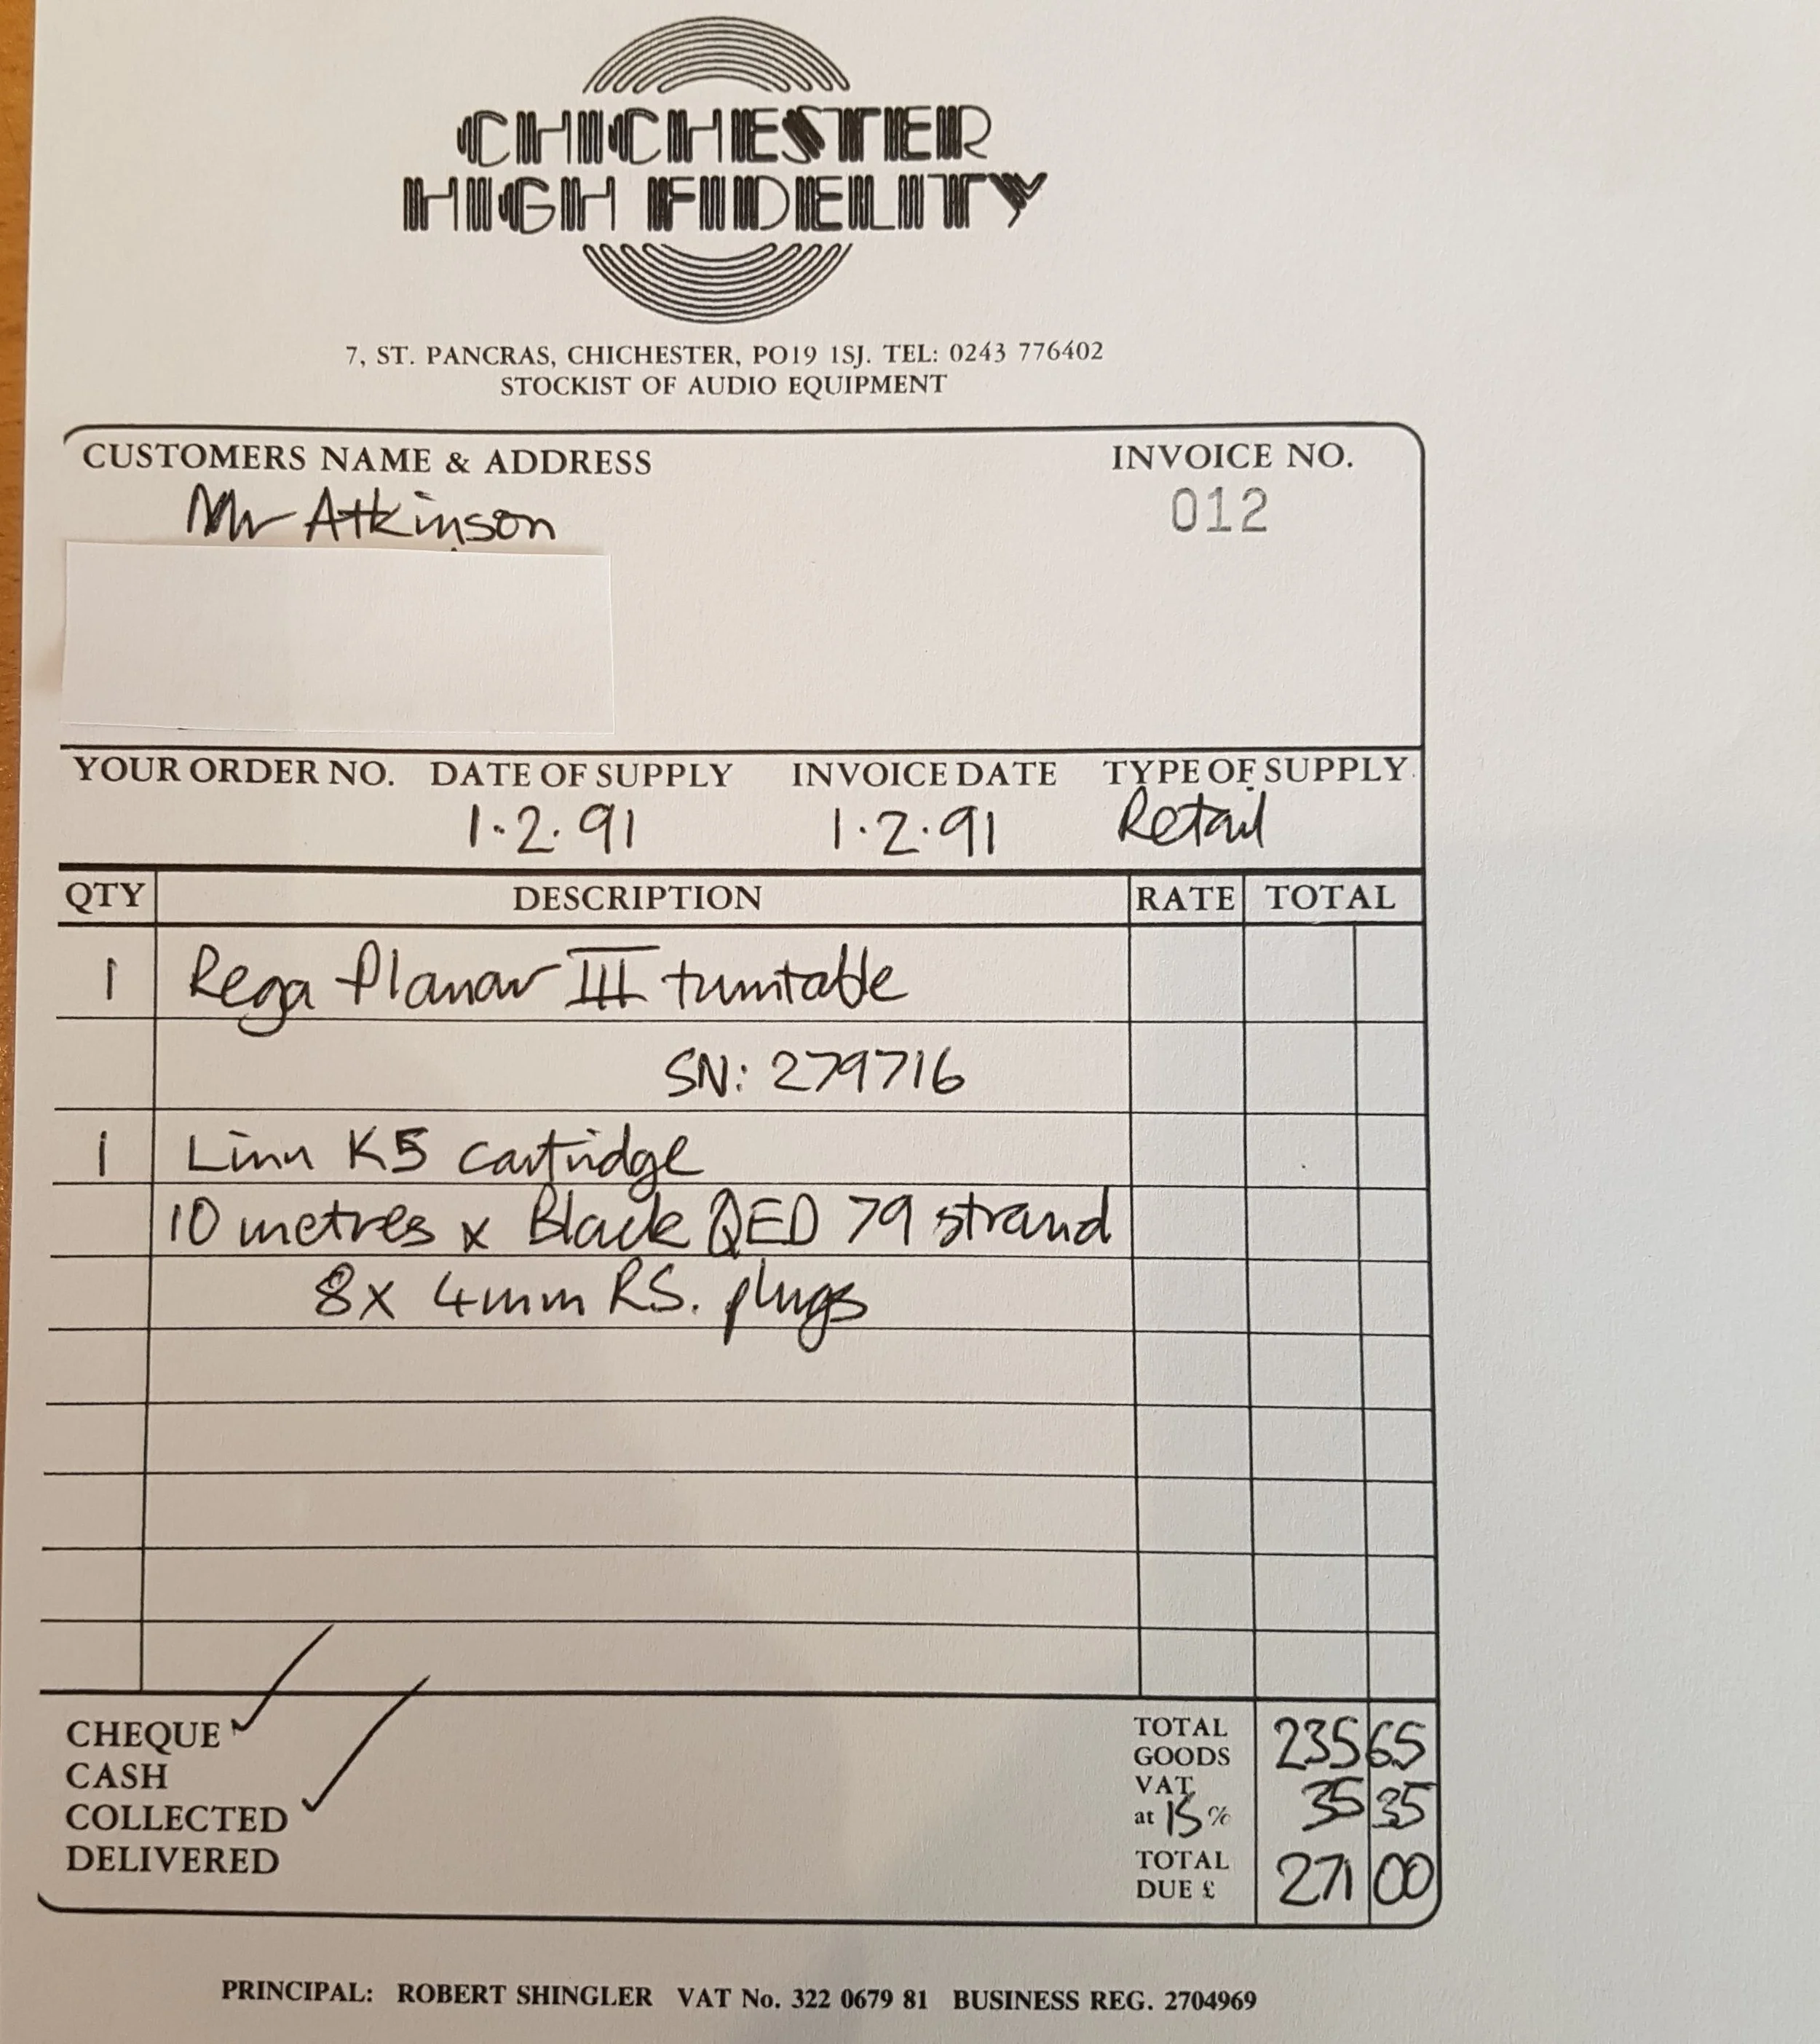 CHICHESTER
HIGH FIDELITY
7, ST. PANCRAS, CHICHESTER, PO19 1SJ. TEL: 0243 776402
STOCKIST OF AUDIO EQUIPMENT
CUSTOMERS NAME & ADDRESS INVOICE NO.
Mr Atkinson 012
YOUR ORDER NO. DATE OF SUPPLY INVOICE DATE TYPE OF SUPPLY
1.2.91 1.2.91 Retail
QTY DESCRIPTION RATE TOTAL
1 Rega Planar III turntable
SN: 279716
1 Linn K5 cartridge
10 metres x Black QED 79 strand
8x 4mm RS. plugs
CHEQUE ✓ TOTAL GOODS 235 65
CASH
COLLECTED ✓ VAT at 15% 35 35
DELIVERED TOTAL DUE £ 271 00
PRINCIPAL: ROBERT SHINGLER VAT No. 322 0679 81 BUSINESS REG. 2704969